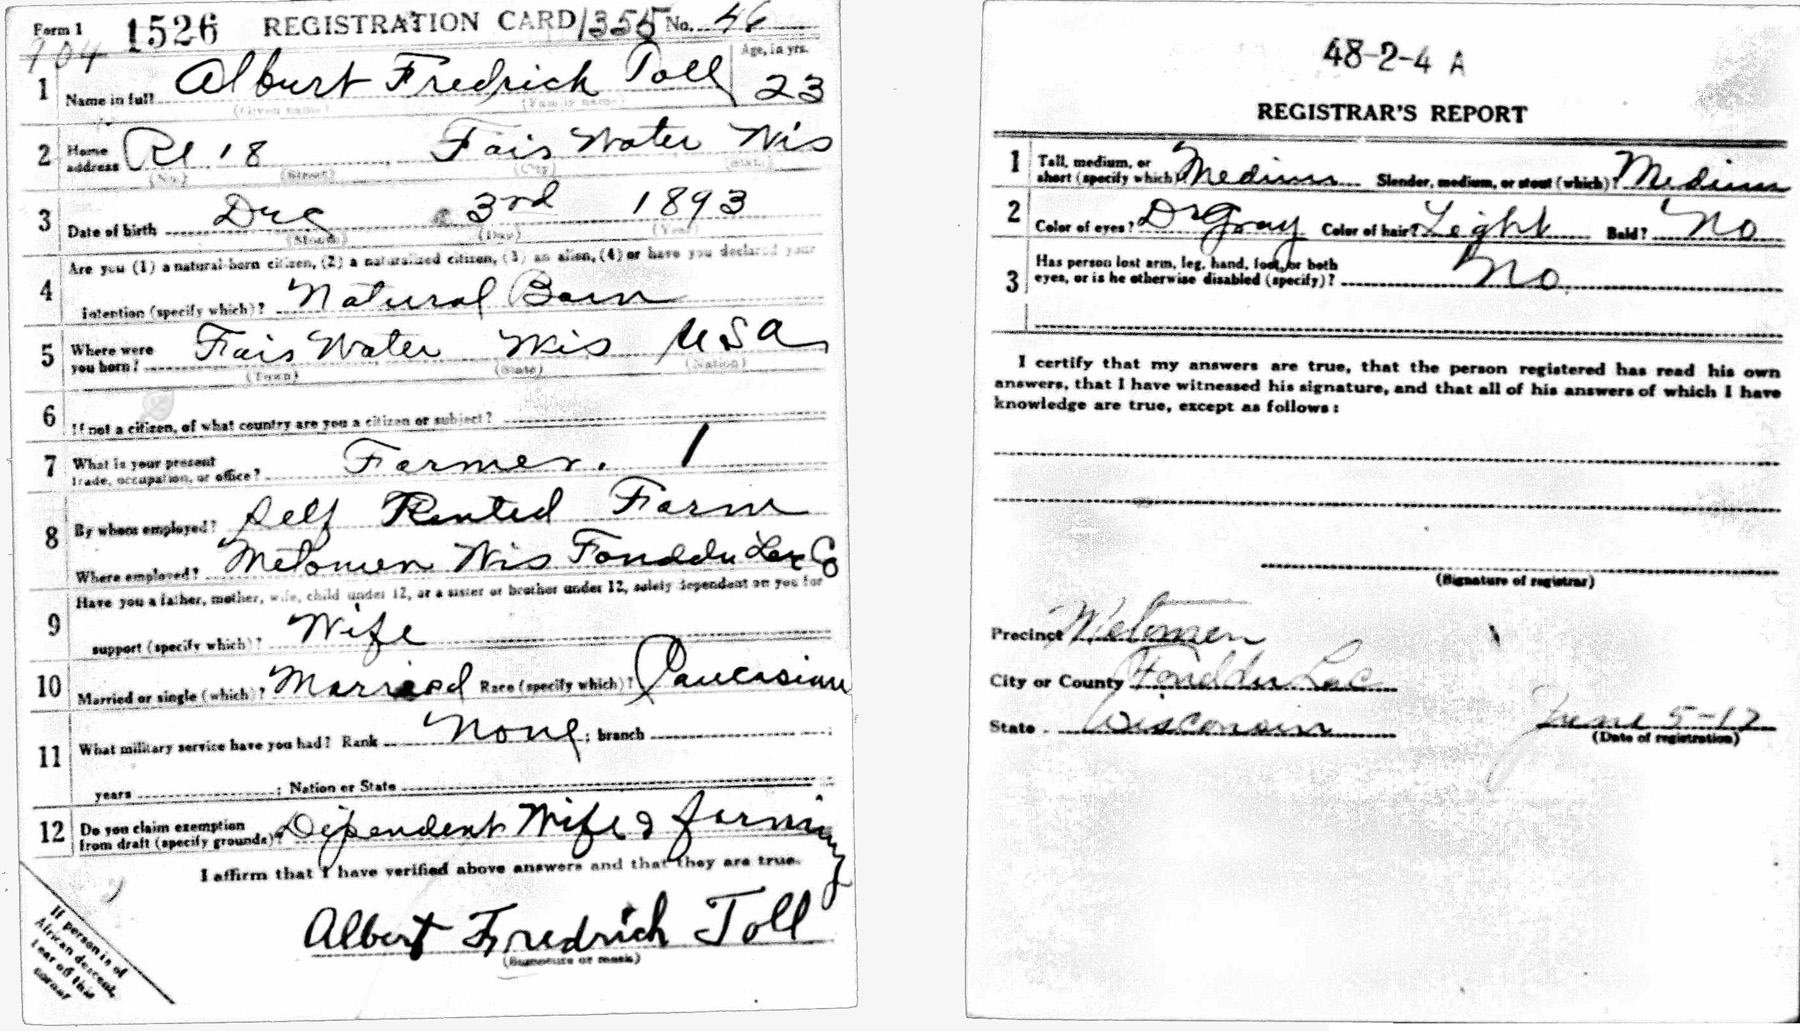 Form 1 1526 REGISTRATION CARD 1355 No. 46
904
Age, in yrs.
1 Name in full Alburt Fredrick Toll 23
(Given name) (Family name)
2 Home address R1 18 Fair Water Wis
(No.) (Street) (City) (State)
3 Date of birth Dec 3rd 1893
(Month) (Day) (Year)
Are you (1) a natural-born citizen, (2) a naturalized citizen, (3) an alien, (4) or have you declared your
4 intention (specify which)? Natural Born
5 Where were you born? Fair Water Wis USA
(Town) (State) (Nation)
6 If not a citizen, of what country are you a citizen or subject?
7 What is your present trade, occupation, or office? Farmer. 1
8 By whom employed? Self Rented Farm
Where employed? Metomen Wis Fonddu Lac Co
Have you a father, mother, wife, child under 12, or a sister or brother under 12, solely dependent on you for
9 support (specify which)? Wife
10 Married or single (which)? Married Race (specify which)? Caucasian
11 What military service have you had? Rank None; branch
years ; Nation or State
12 Do you claim exemption from draft (specify grounds)? Dependent Wife & farming
I affirm that I have verified above answers and that they are true.
Albert Fredrich Toll
(Signature or mark)
If person is of
African descent,
tear off this
corner
48-2-4 A
REGISTRAR'S REPORT
1 Tall, medium, or short (specify which)? Medium Slender, medium, or stout (which)? Medium
2 Color of eyes? Dr Gray Color of hair? Light Bald? No
3 Has person lost arm, leg, hand, foot, or both
eyes, or is he otherwise disabled (specify)? No.
I certify that my answers are true, that the person registered has read his own
answers, that I have witnessed his signature, and that all of his answers of which I have
knowledge are true, except as follows:
(Signature of registrar)
Precinct Metomen
City or County Fonddu Lac
State Wisconsin June 5-17
(Date of registration)